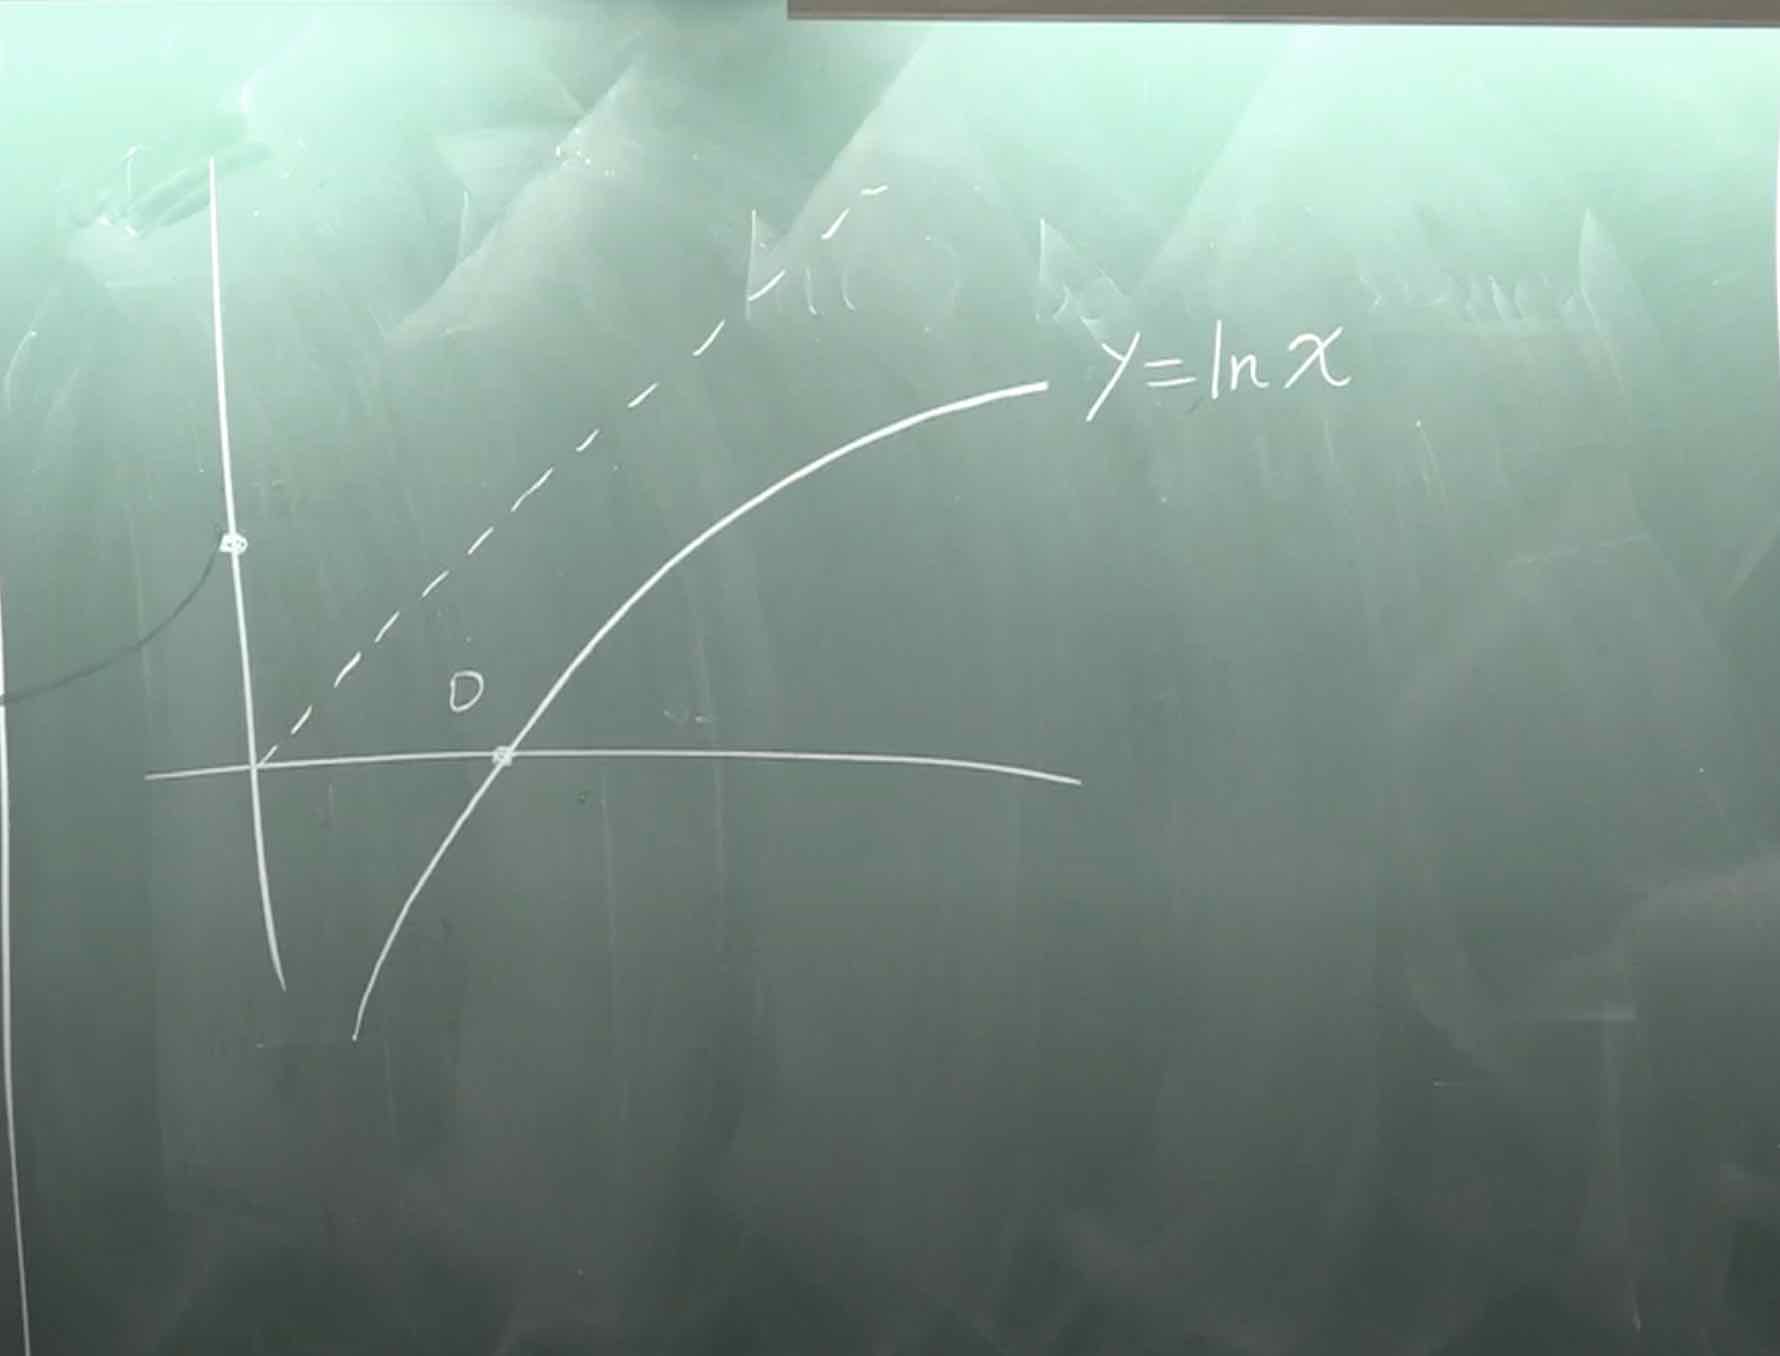 y=ln x
0